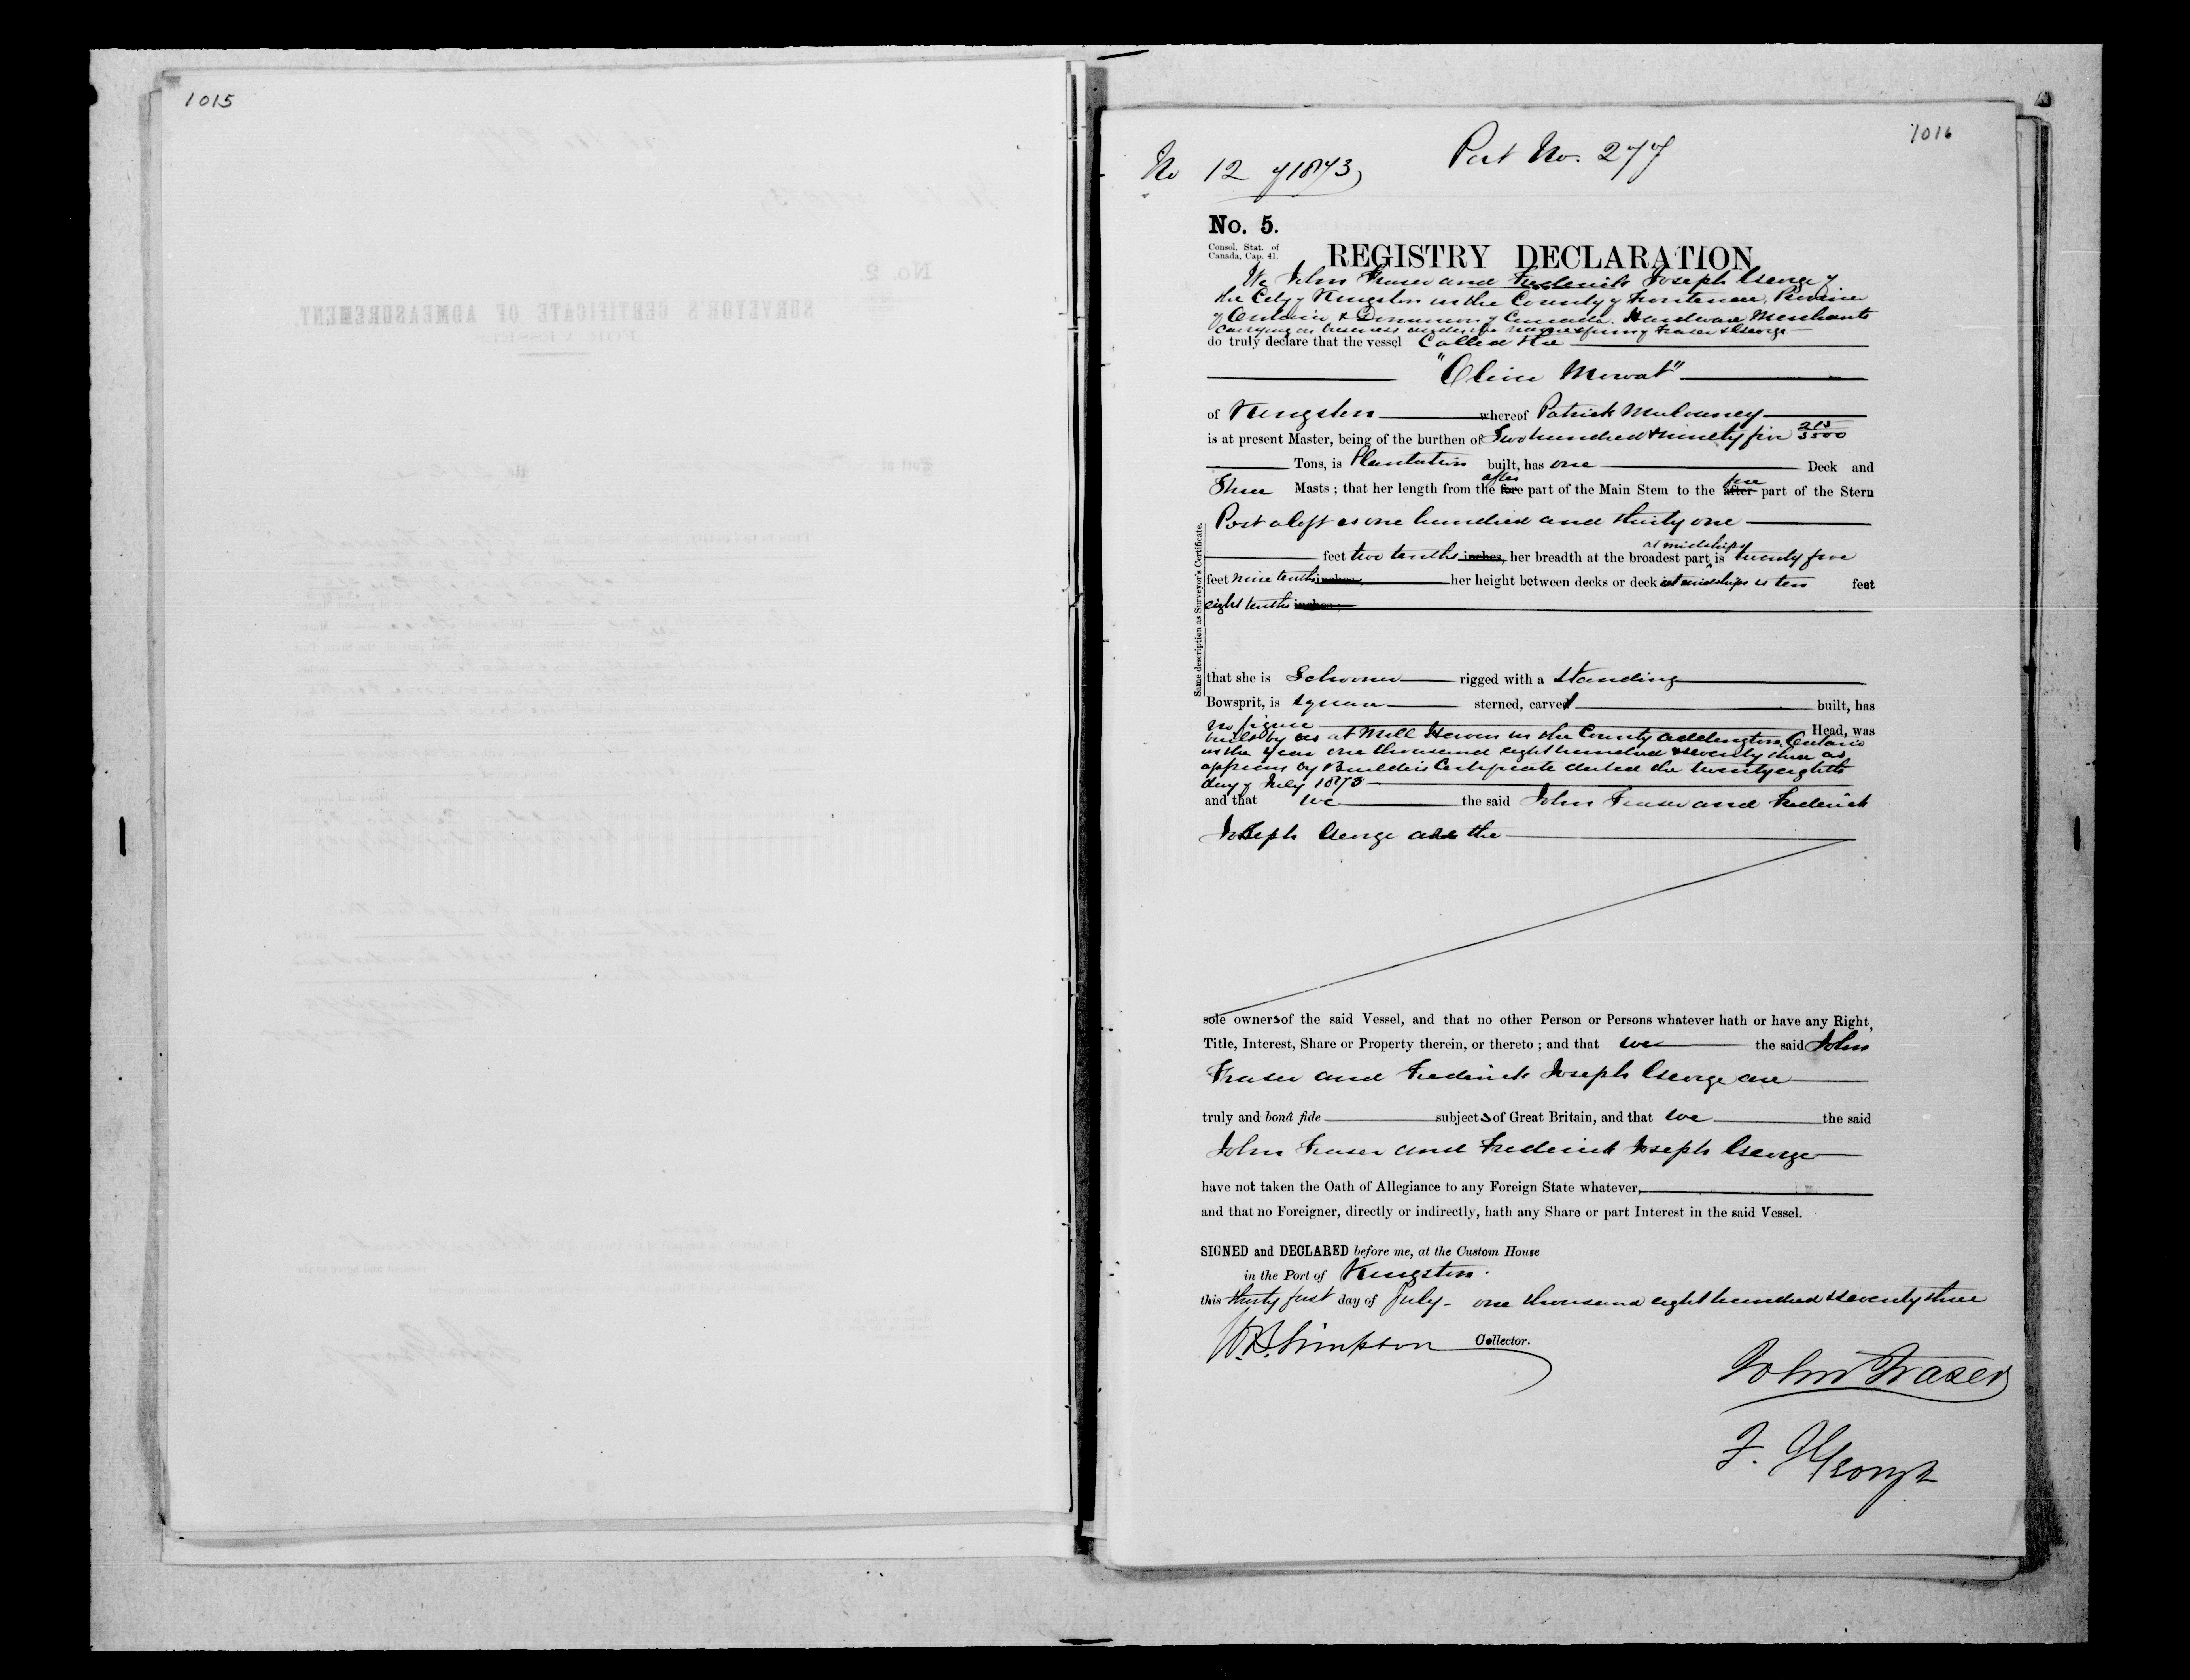 1015
1016
No 12 of 1873
Port No. 277
No. 5.
Consol. Stat. of
Canada, Cap. 41.
REGISTRY DECLARATION
We John Fraser and Frederick Joseph George of
the City of Kingston in the County of Frontenac, Province
of Ontario & Dominion of Canada. Hardware Merchants
carrying on business under the name & firm of Fraser & George
do truly declare that the vessel Called the
"Oliver Mowat"
of Kingston whereof Patrick Mulouney
is at present Master, being of the burthen of Two hundred & ninety five 215/5500
Tons, is Plantation built, has one Deck and
after fore
Three Masts ; that her length from the fore part of the Main Stem to the after part of the Stern
Post aloft is one hundred and thirty one
at midships
feet two tenths inches, her breadth at the broadest part is twenty five
feet nine tenths inches, her height between decks or deck at midships is ten feet
eight tenths inches ;
Same description as Surveyor's Certificate.
that she is Schooner rigged with a standing
Bowsprit, is square sterned, carvel built, has
no figure Head, was
built by us at Mill Haven in the County Addington, Ontario
in the Year one thousand eight hundred & seventy three as
appears by Builders Certificate dated the twenty eighth
day of July 1873
and that we the said John Fraser and Frederick
Joseph George are the
sole owners of the said Vessel, and that no other Person or Persons whatever hath or have any Right,
Title, Interest, Share or Property therein, or thereto ; and that we the said John
Fraser and Frederick Joseph George are
truly and bonâ fide subjects of Great Britain, and that we the said
John Fraser and Frederick Joseph George
have not taken the Oath of Allegiance to any Foreign State whatever,
and that no Foreigner, directly or indirectly, hath any Share or part Interest in the said Vessel.
SIGNED and DECLARED before me, at the Custom House
in the Port of Kingston.
this thirty first day of July - one thousand eight hundred & seventy three
W.B. Simpson Collector.
John Fraser
F. J George